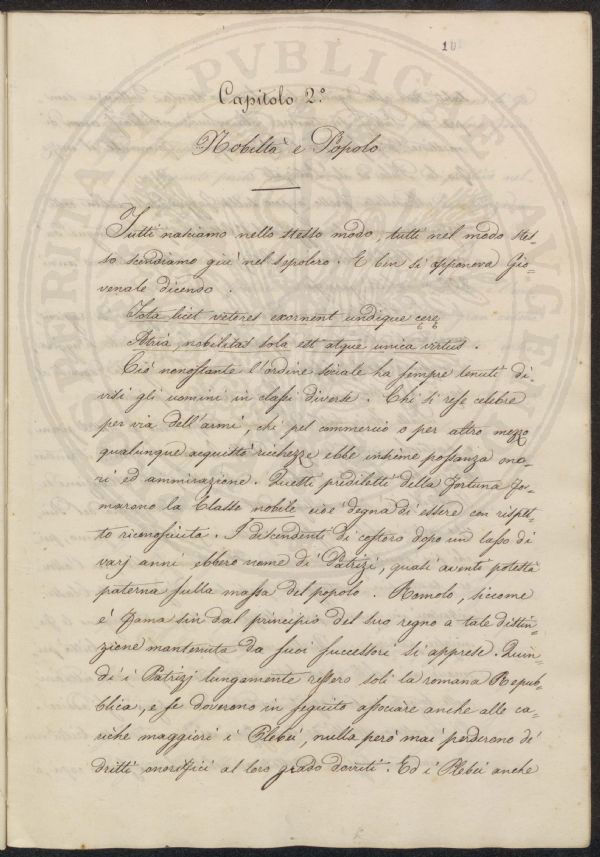 10
Capitolo 2.°
Nobiltà e Popolo
Tutti nasciamo nello stesso modo, tutti nel modo stes-
so scendiamo giù nel sepolcro. E bin si apponeva Gio-
venale dicendo.
Tota licet veteres exornent undique cerę
Atria, nobilitas sola est atque unica virtus.
Ciò nonostante l'ordine sociale ha sempre tenuti di-
visi gli uomini in classi diverse. Chi si rese celebre
per via dell'armi, chi pel commercio o per altro mezzo
qualunque acquistò ricchezze ebbe insieme possanza ono-
ri ed ammirazione. Questi prediletti della Fortuna for-
marono la Classe nobile cioè degna di essere con rispet-
to riconosciuta. I discendenti di costoro dopo un lasso di
varj anni ebbero nome di Patrizi, quasi aventi potestà
paterna sulla massa del popolo. Romolo, siccome
è fama sin dal principio del suo regno a tale distin-
zione mantenuta da suoi successori si apprese. Quin-
di i Patrizj lungamente ressero soli la romana Repub-
blica, e se doverono in seguito associare anche alle ca-
riche maggiori i Plebei, nulla però mai perderono di
dritti onorifici al loro grado dovuti. Ed i Plebei anche